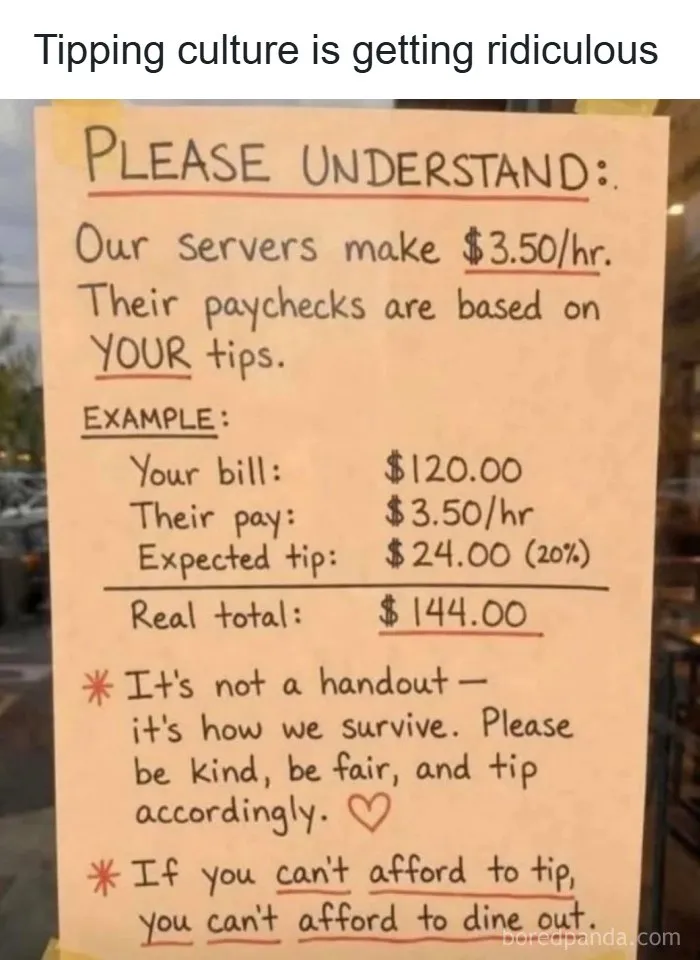 Tipping culture is getting ridiculous
PLEASE UNDERSTAND:
Our servers make $3.50/hr.
Their paychecks are based on
YOUR tips.
EXAMPLE:
Your bill: $120.00
Their pay: $3.50/hr
Expected tip: $24.00 (20%)
Real total: $144.00
* It's not a handout —
it's how we survive. Please
be kind, be fair, and tip
accordingly. ♡
* If you can't afford to tip,
you can't afford to dine out.
boredpanda.com